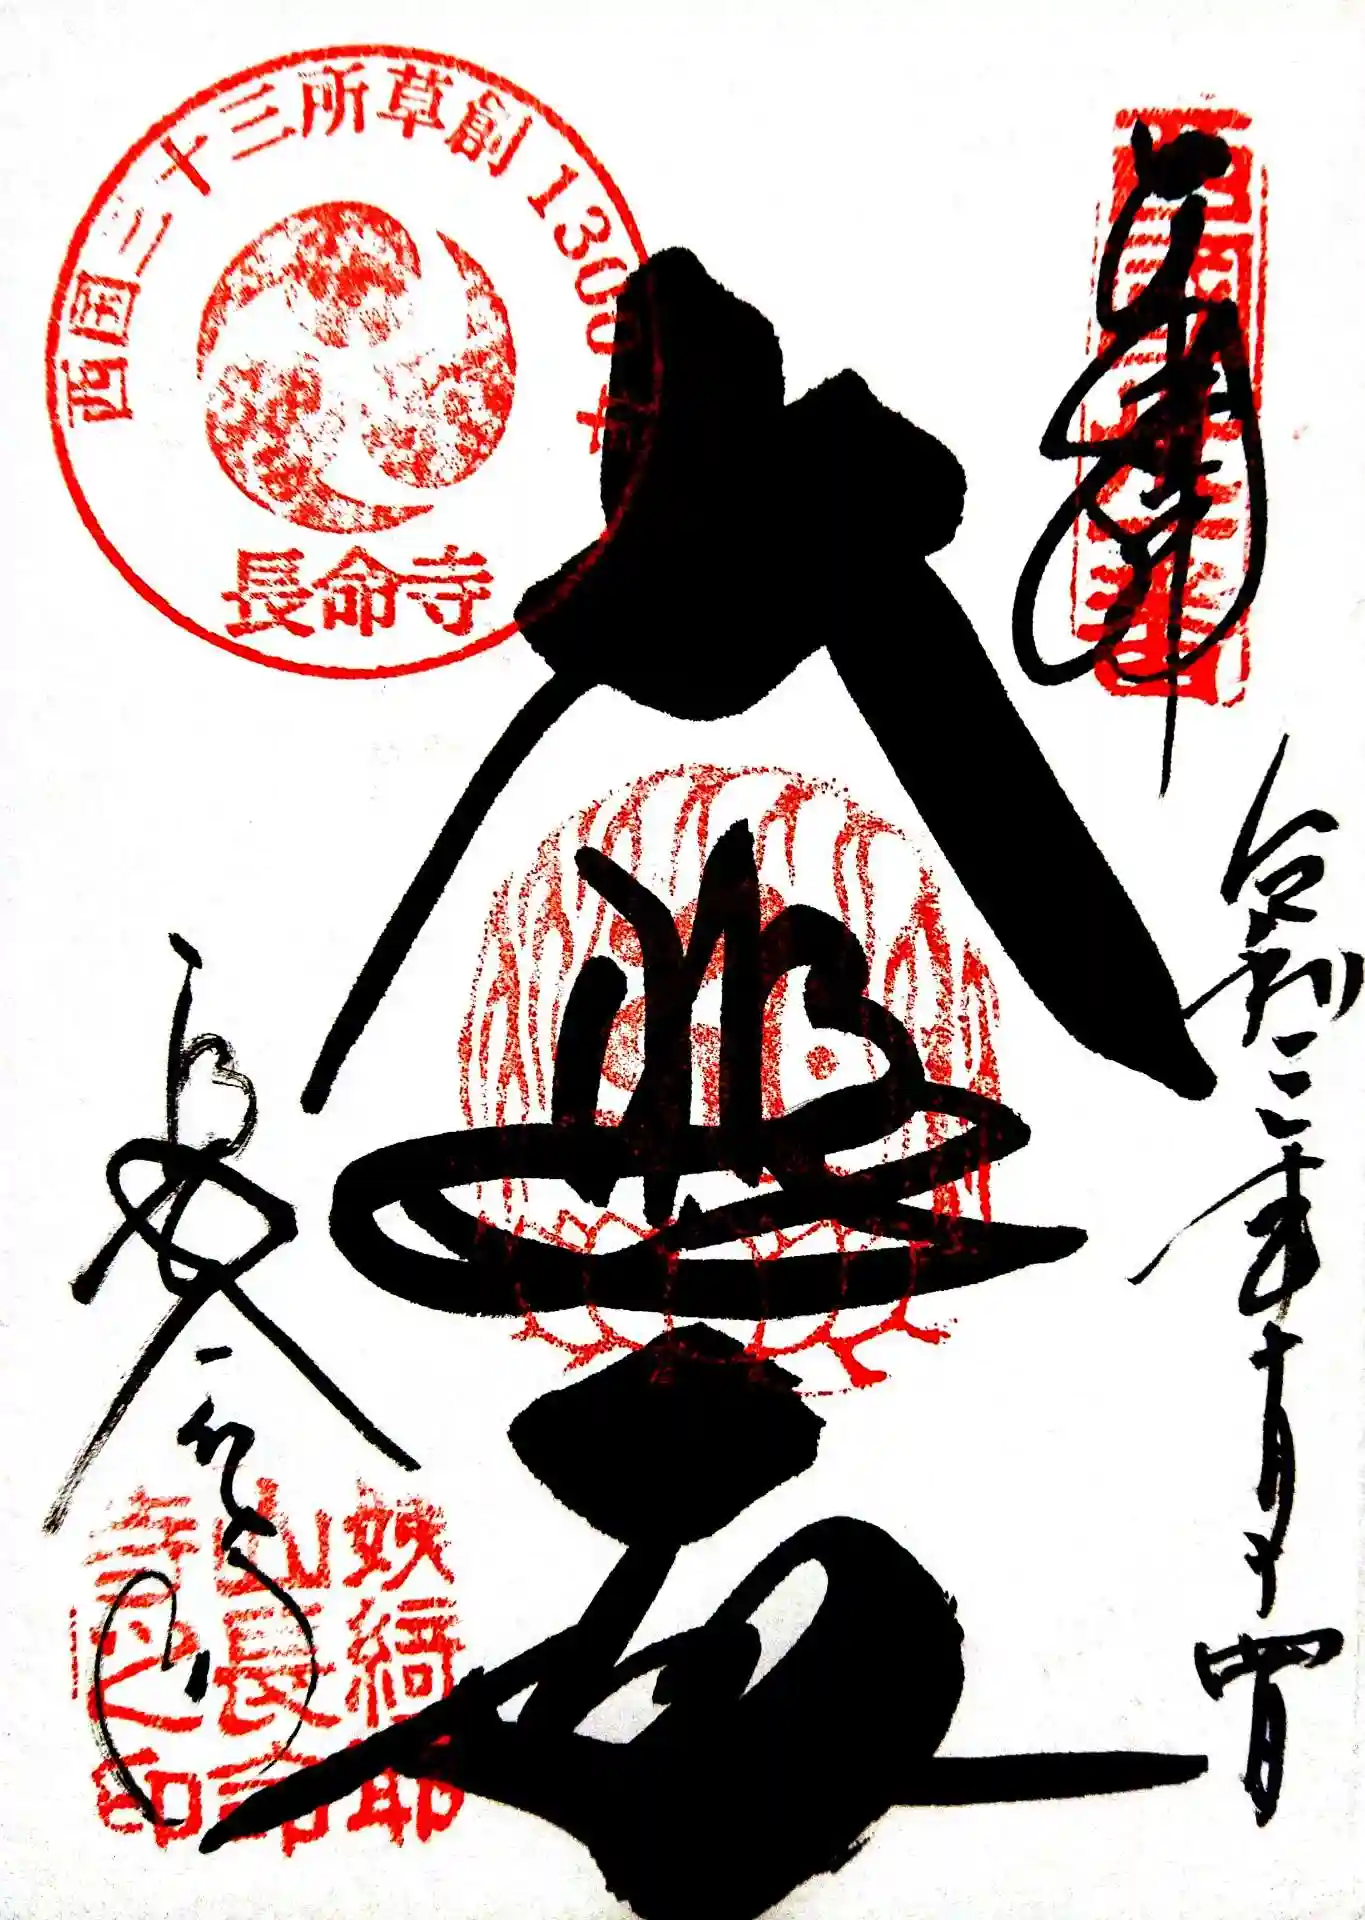 奉拝
令和二年十月二十四日
大悲殿
西国三十三所草創1300年
長命寺
長命寺
姨綺耶
山長命
寺之印